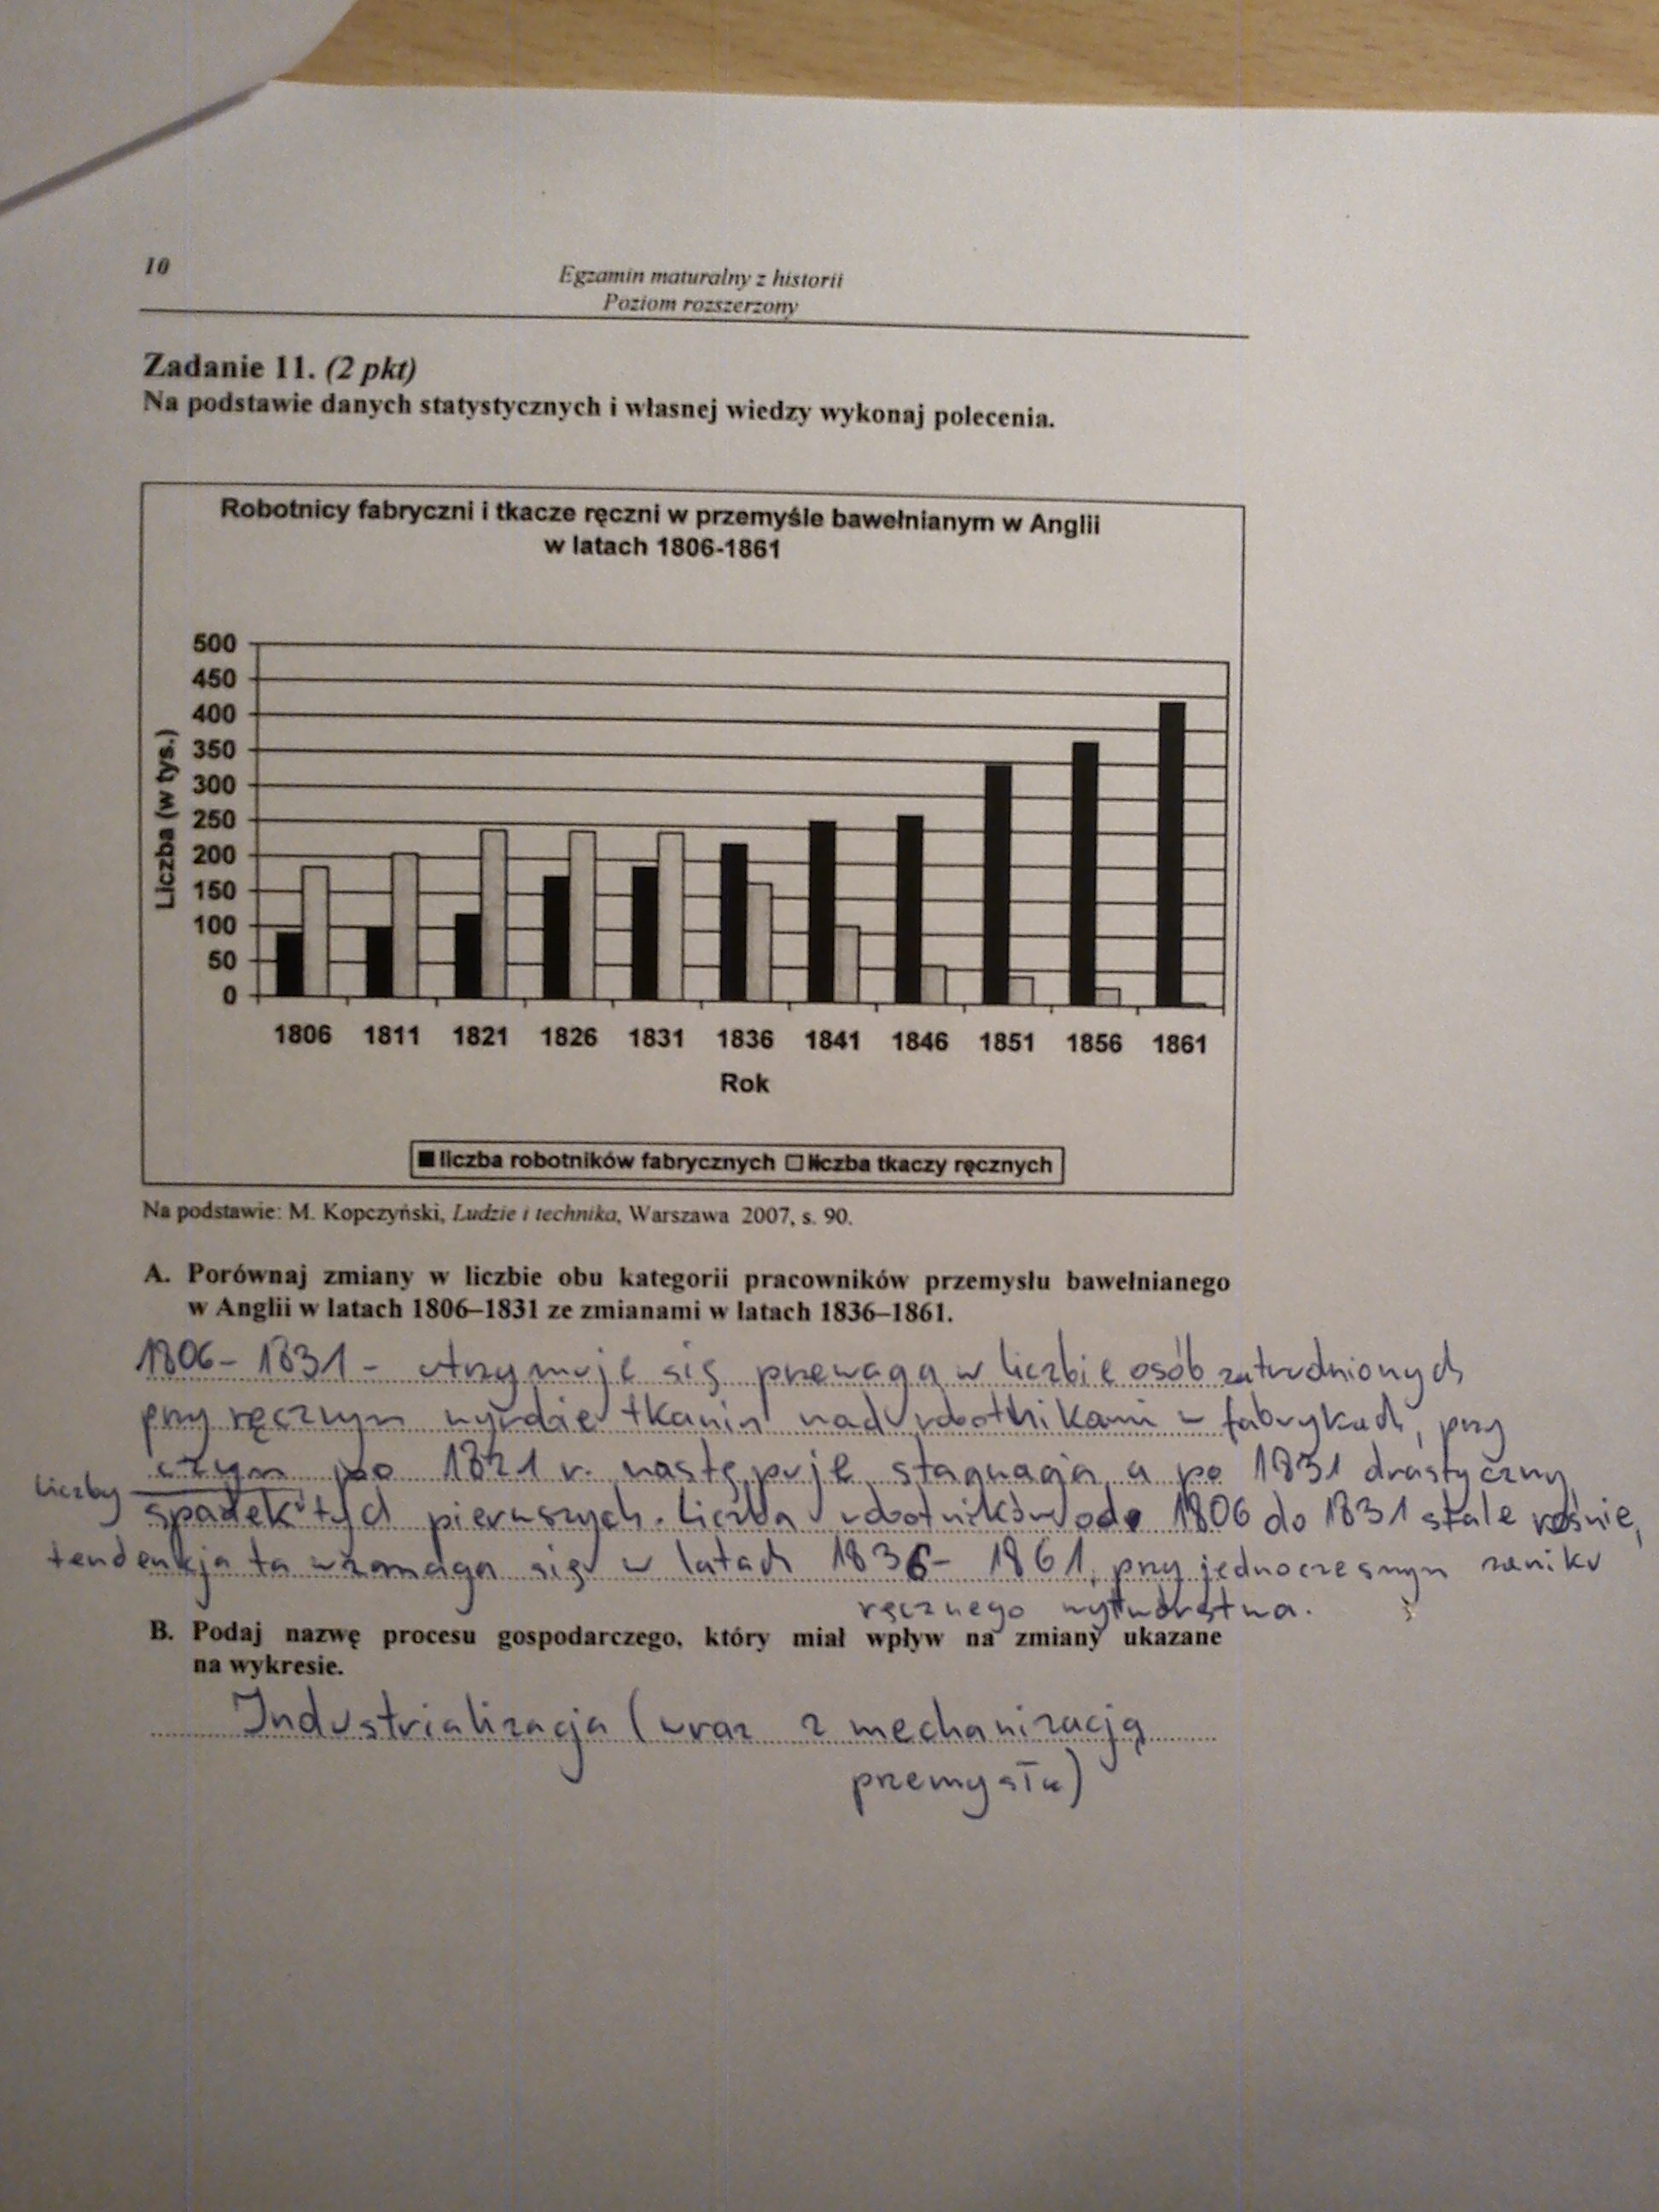 10
Egzamin maturalny z historii
Poziom rozszerzony
Zadanie 11. (2 pkt)
Na podstawie danych statystycznych i własnej wiedzy wykonaj polecenia.
Robotnicy fabryczni i tkacze ręczni w przemyśle bawełnianym w Anglii
w latach 1806-1861
Liczba (w tys.)
500
450
400
350
300
250
200
150
100
50
0
1806 1811 1821 1826 1831 1836 1841 1846 1851 1856 1861
Rok
liczba robotników fabrycznych liczba tkaczy ręcznych
Na podstawie: M. Kopczyński, Ludzie i technika, Warszawa 2007, s. 90.
A. Porównaj zmiany w liczbie obu kategorii pracowników przemysłu bawełnianego
w Anglii w latach 1806–1831 ze zmianami w latach 1836–1861.
1806- 1831 - utrzymuje się przewaga w liczbie osób zatrudnionych
przy ręcznym wyrobie tkanin nad robotnikami w fabrykach, przy
czym po 1821 r. następuje stagnacja a po 1831 drastyczny
spadek liczby tych pierwszych. Liczba robotników od 1806 do 1831 stale rośnie,
tendencja ta wzmaga się w latach 1836- 1861, przy jednoczesnym zaniku
ręcznego wytwórstwa.
B. Podaj nazwę procesu gospodarczego, który miał wpływ na zmiany ukazane
na wykresie.
Industrializacja (wraz z mechanizacją
przemysłu)